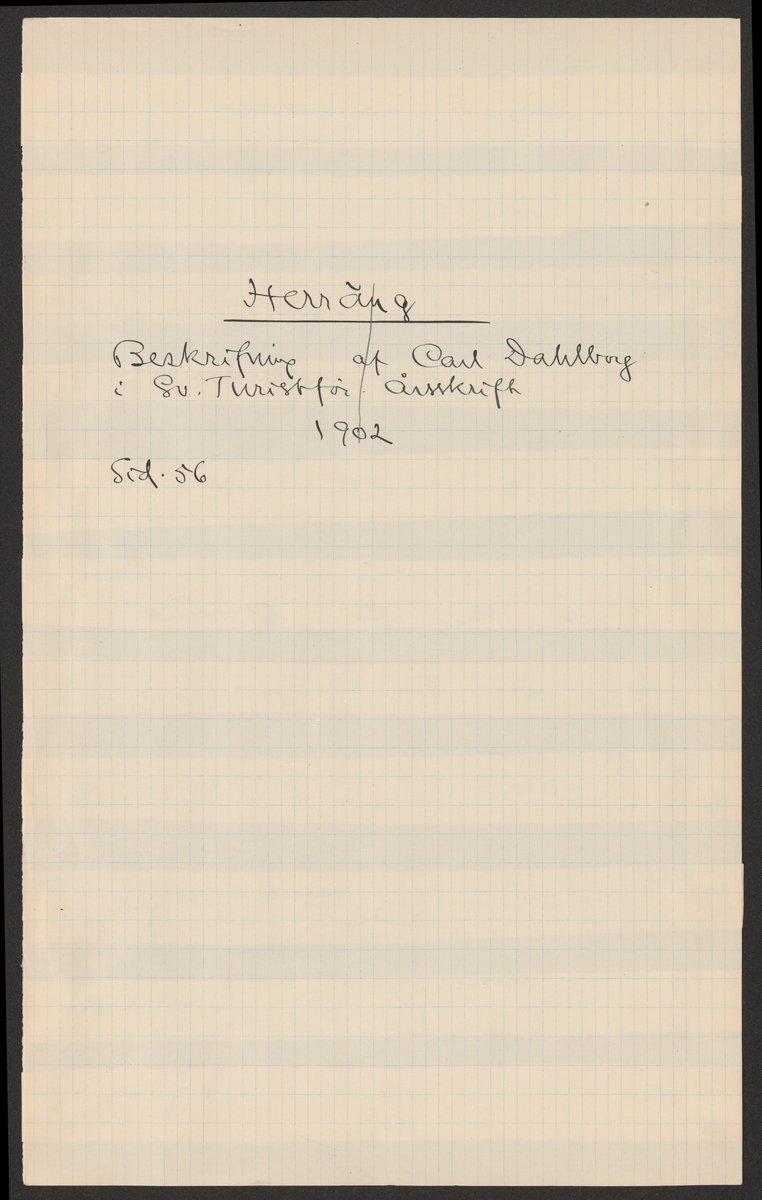 Herräng
Beskrifning af Carl Dahlborg
i Sv. Turistför. Årsskrift
1902
Sid. 56